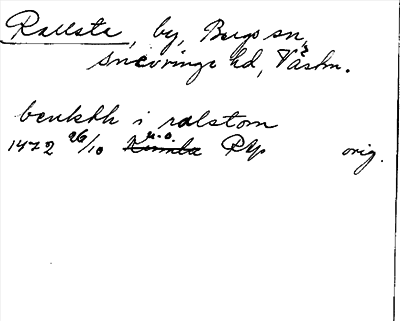 Rallsta, by, Bergs sn,
Snevringe hd, Västm.
benkth i ralstom
1472 26/10 u.o. Kumla RAp orig.